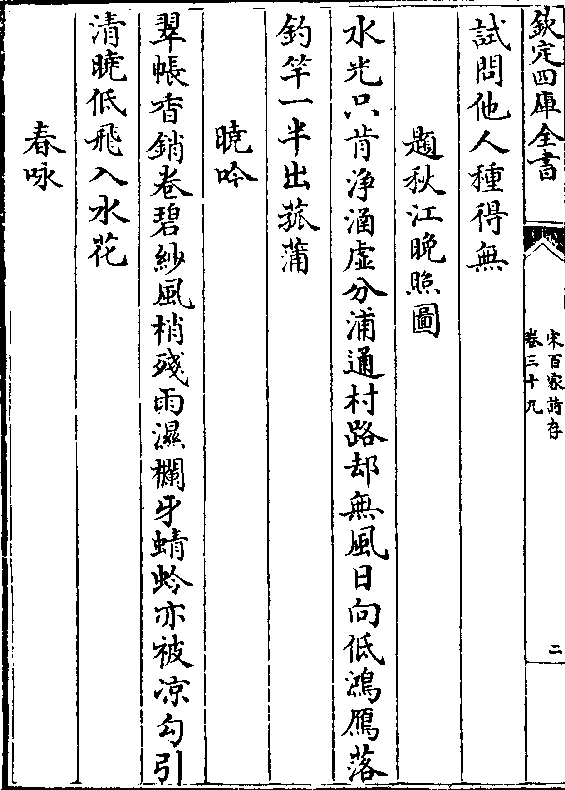 欽定四庫全書
宋百家詩存
卷三十九
二
試問他人種得無
題秋江晚照圖
水光只肯浄涵虚分浦通村路却無風日向低鴻鴈落
釣竿一半出菰蒲
曉吟
翠帳香銷卷碧紗風梢殘雨濕欄牙蜻蛉亦被凉勾引
清曉低飛入水花
春咏